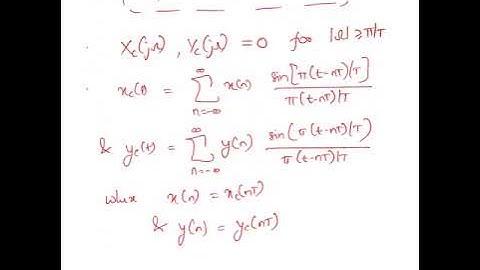 · Xc(jΩ), Yc(jΩ) = 0 for |Ω| ≥ π/T
· xc(t) = ∞∑n=-∞ x(n) sin[π(t-nT)/T] / π(t-nT)/T
& yc(t) = ∞∑n=-∞ y(n) sin(π(t-nT)/T) / π(t-nT)/T
where x(n) = xc(nT)
& y(n) = yc(nT)